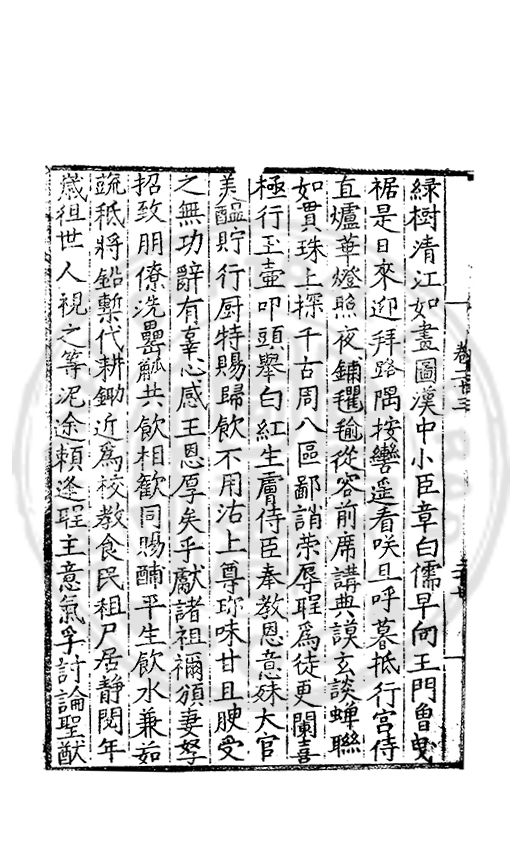 綠樹清江如畫圖漢中小臣章白儒早向王門曾曵
裾是日來迎拜路隅按轡遥看咲且呼暮抵行宮侍
直爐葦燈照夜鋪氍毹從容前席講典謨玄談蟬聯
如貫珠上探千古周八區鄙誚荣辱聖為徒更闌喜
極行玉壷叩頭舉白紅生膚侍臣奉教恩意殊大官
美醖貯行厨特賜歸飲不用沽上尊珎味甘且腴受
之無功辭有辜心感王恩厚矣乎獻諸祖禰頒妻孥
招致朋僚洗罍觚共飲相歡同賜酺平生飲水兼茹
蔬秪將鉛槧代耕鋤近爲校教食民租尸居靜閱年
嵗徂世人視之等泥途頼逢聖主意氣孚討論聖猷
卷二